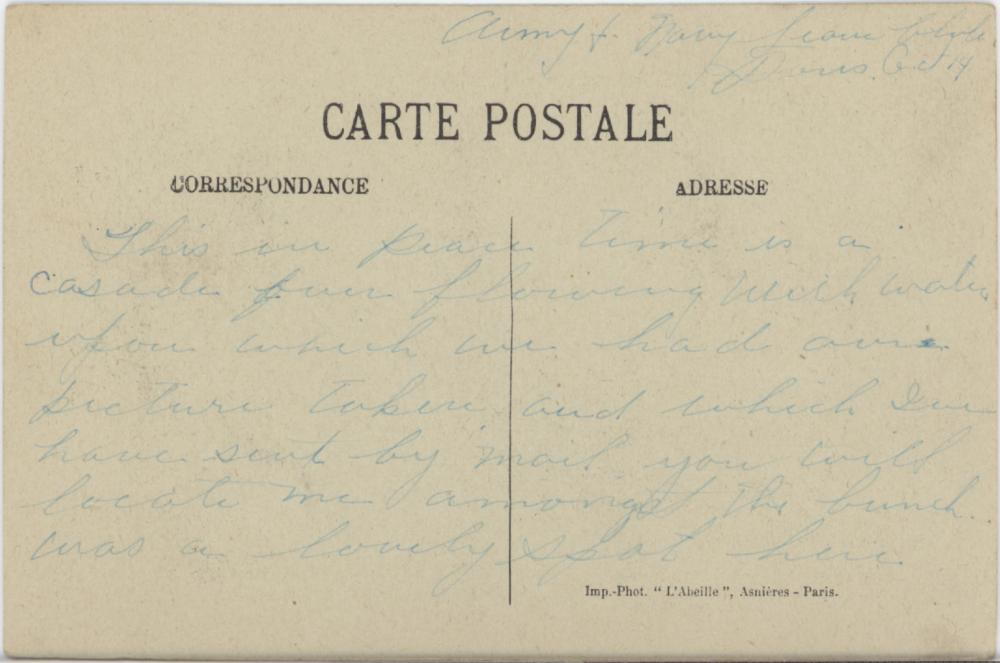 Army & Navy Leave Club
Paris. Oct 14
CARTE POSTALE
CORRESPONDANCE
ADRESSE
This in peace time is a
casade ever flowing with water
upon which we had our
picture taken and which I
have sent by mail you will
locate me amongst the bunch.
was a lovely spot here
Imp.-Phot. " L'Abeille ", Asnières - Paris.